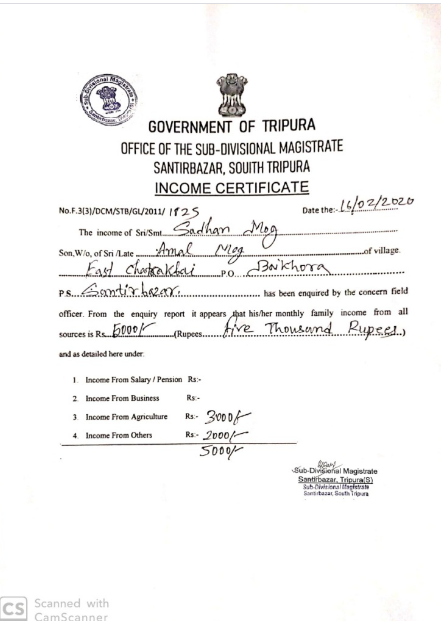 Sub-Divisional Magistrate
GOVERNMENT OF TRIPURA
OFFICE OF THE SUB-DIVISIONAL MAGISTRATE
SANTIRBAZAR, SOUITH TRIPURA
INCOME CERTIFICATE
No.F.3(3)/DCM/STB/GL/2011/ 1825 Date the:- 16/02/2020
The income of Sri/Smt. Sadhan Mog
Son,W/o, of Sri /Late Amal Mog of village.
East P.O. Baikhora
P.S. Santirbazar. has been enquired by the concern field
officer. From the enquiry report it appears that his/her monthly family income from all
sources is Rs. 5000/- (Rupees. five Thousand Rupees.)
and as detailed here under:
1. Income From Salary / Pension Rs:-
2. Income From Business Rs:-
3. Income From Agriculture Rs:- 3000/-
4. Income From Others Rs:- 2000/-
5000/-
Sub-Divisional Magistrate
Santirbazar, Tripura(S)
Sub-Divisional Magistrate
Santirbazar, South Tripura
CS Scanned with
CamScanner